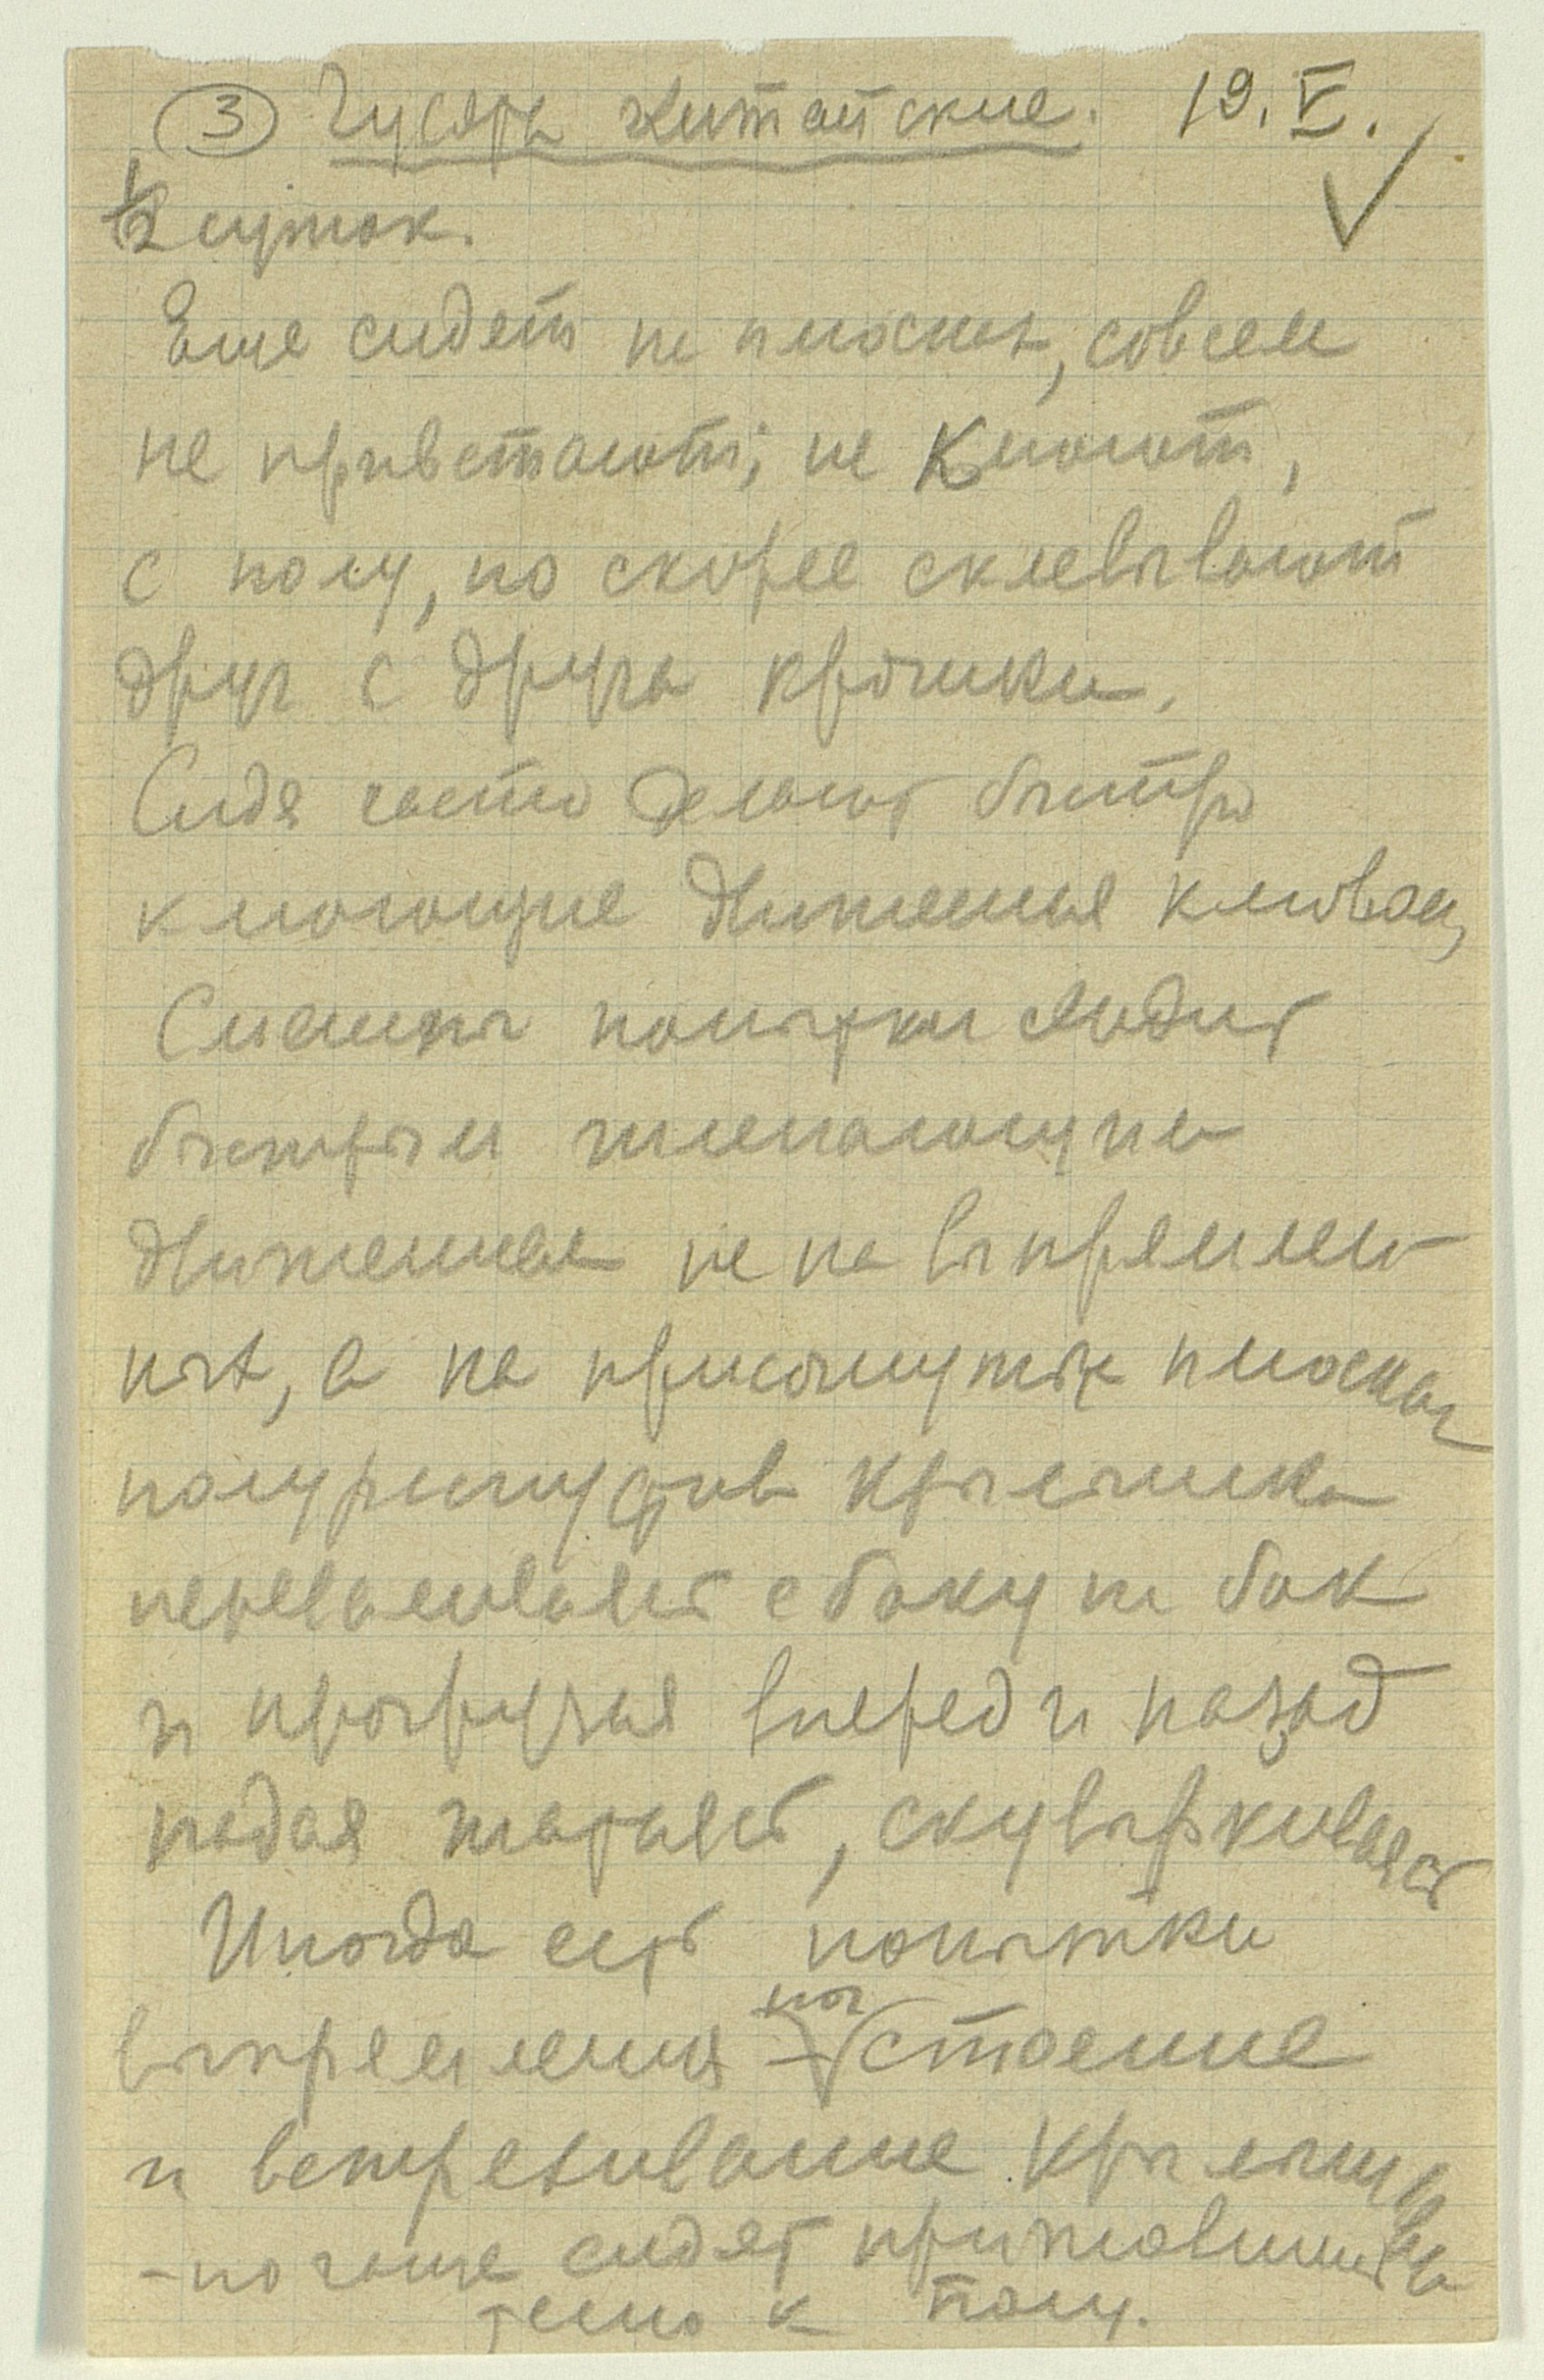 ③ Гусята китайские. 19. V. ✓
½ суток.
Еще сидят на плюснах, совсем
не привстают; не клюют,
с полу, но скорее склевывают
друг с друга крошки.
Сидя часто делают быстро
клюющие движения клювом,
Смешны попытки ходить
быстрым шлепающим
движением не на выпрямлен
ных, а на присогнутых плюснах
полураспустив крылышки
переваливаясь с боку на бок
и вперед и назад
падая шатаясь, скувыркиваясь
Иногда есть попытки
выпрямления ног стоение
и встряхивание крылышками
- но чаще сидят прижавшись
тело к полу.